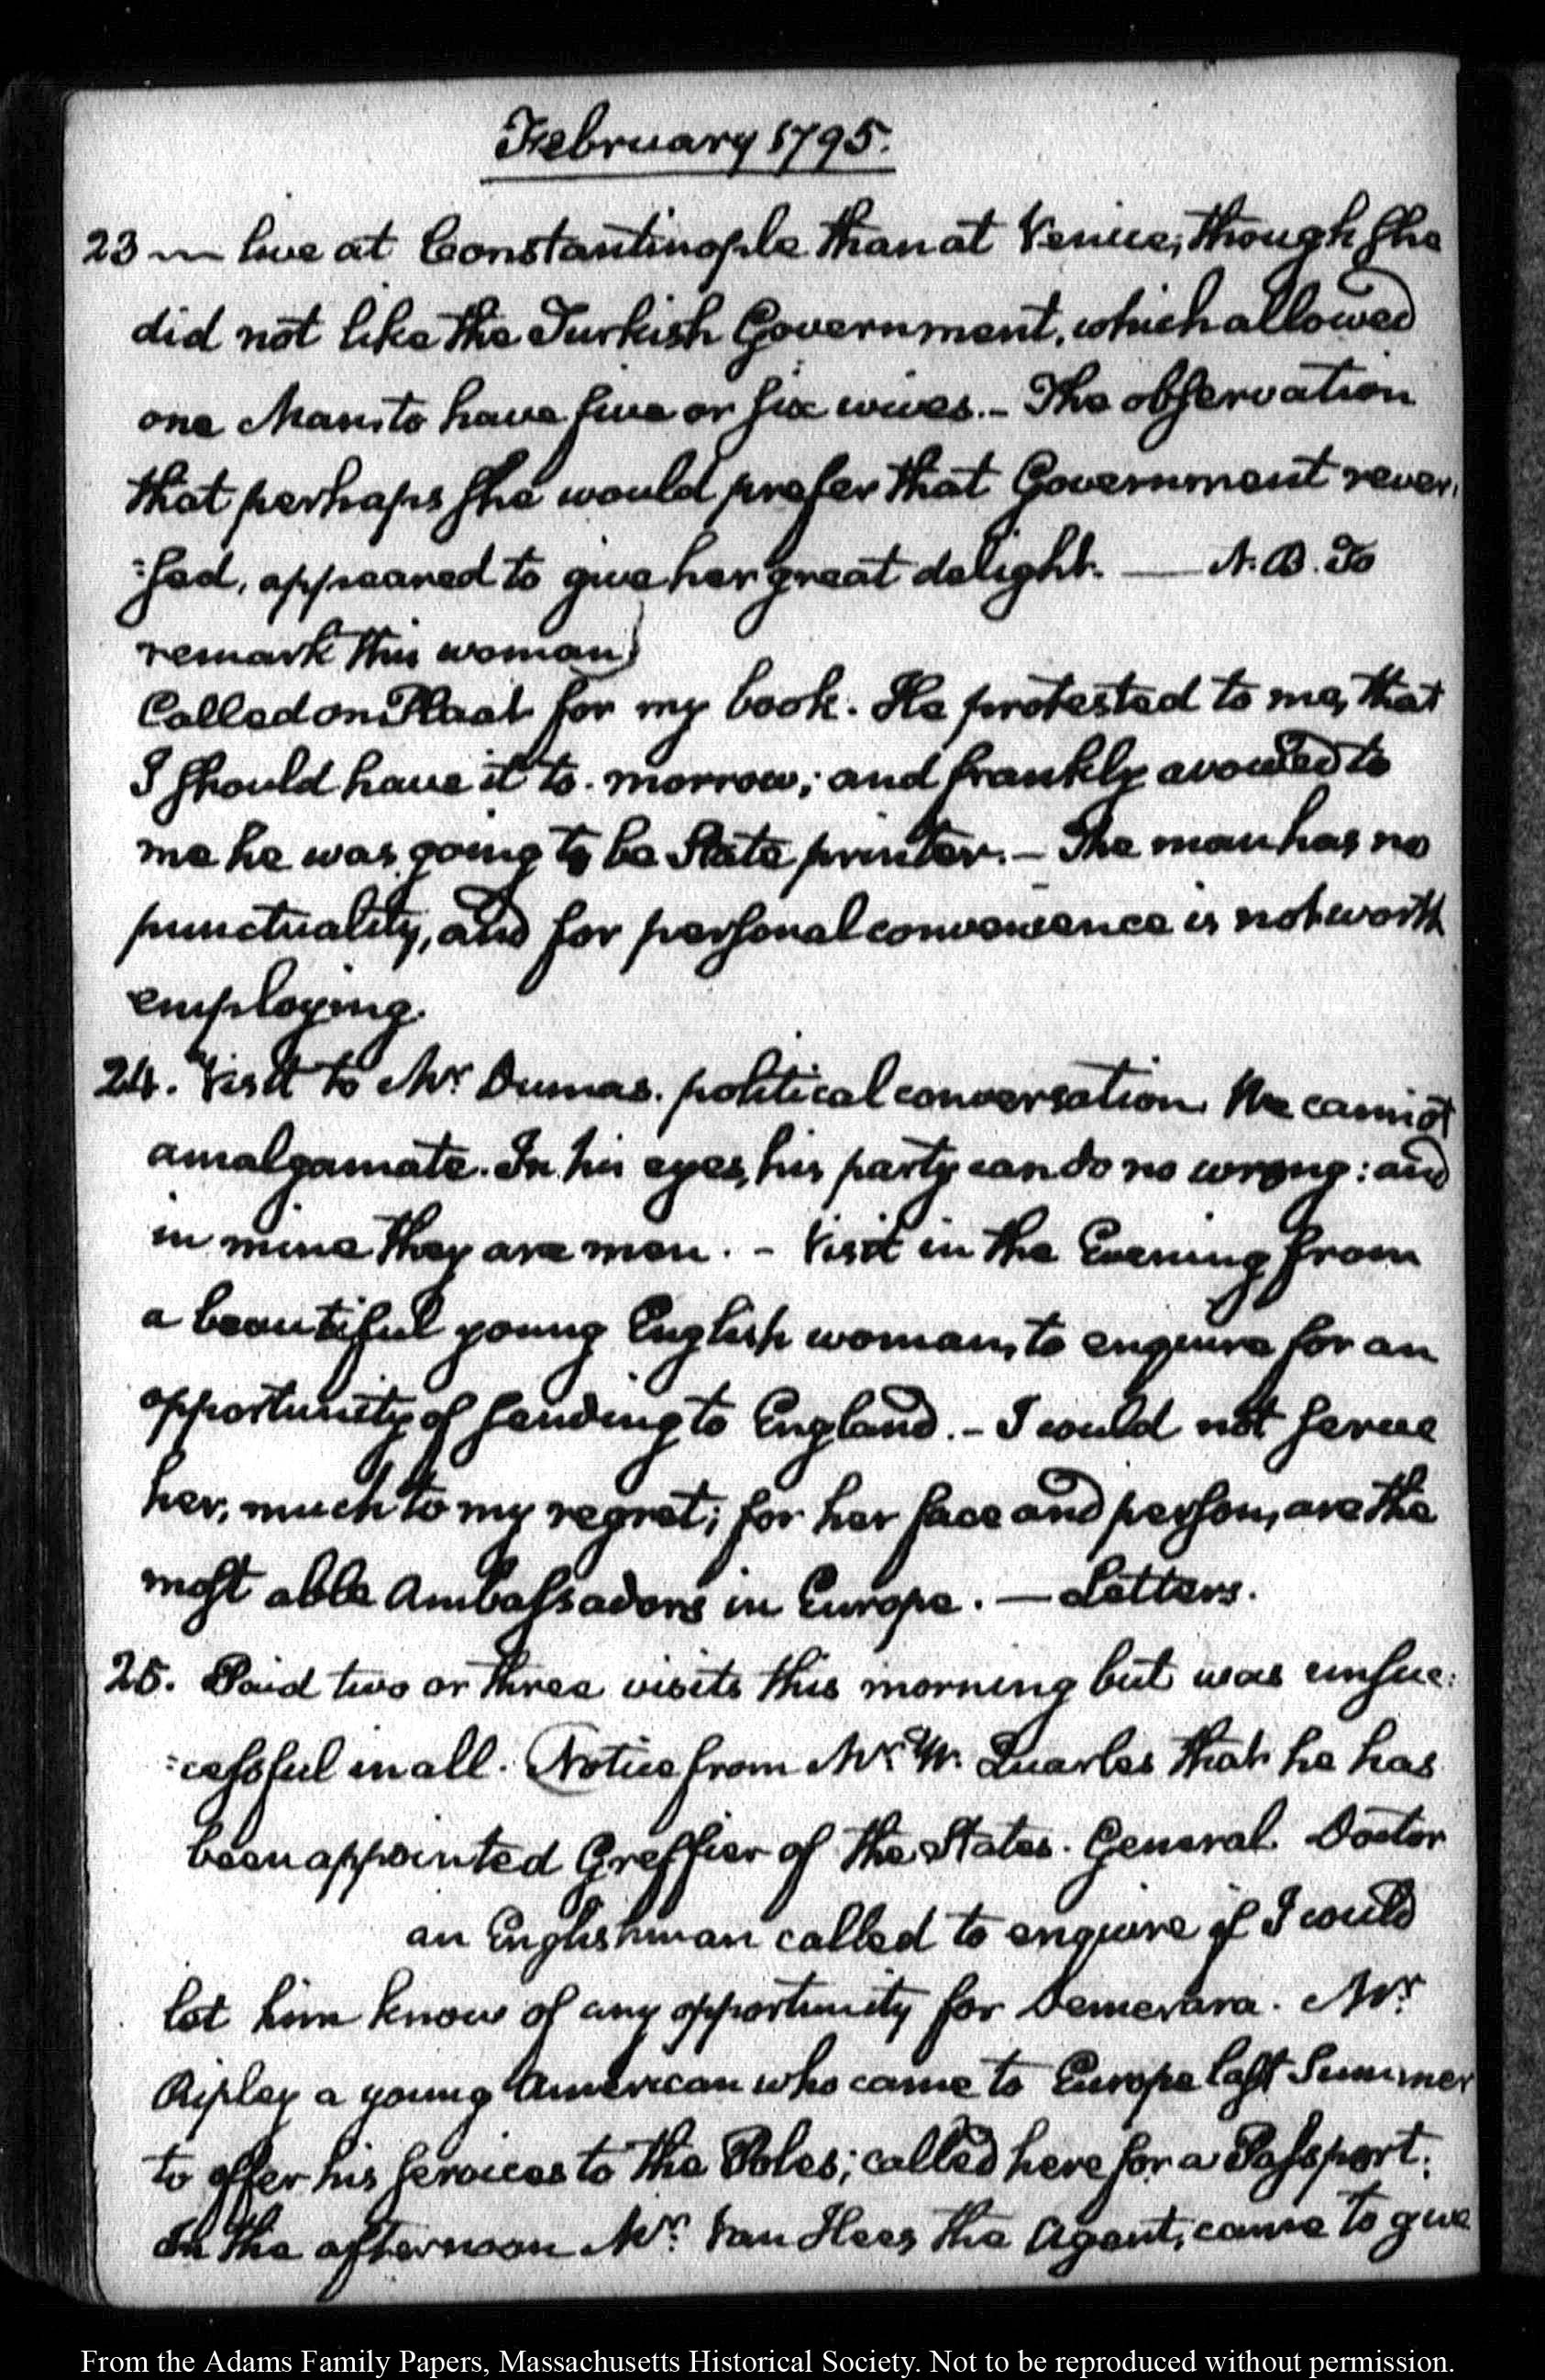 February 1795.
23 ~ live at Constantinople than at Venice, though she
did not like the Turkish Government, which allowed
one Man, to have five or six wives. - The observation
that perhaps she would prefer that Government rever-
=sed, appeared to give her great delight. — N.B. To
remark this woman)
Called on Plaat for my book. He protested to me, that
I should have it to-morrow; and frankly avowed to
me he was going to be State printer. - The man has no
punctuality, and for personal convenience is not worth
employing.
24. Visit to Mr. Dumas. political conversation. We cannot
amalgamate. In his eyes, his party can do no wrong: and
in mine they are men. - Visit in the Evening from
a beautiful young English woman, to enquire for an
opportunity of sending to England. - I could not serve
her, much to my regret; for her face and person, are the
most able Ambassadors in Europe. — Letters.
25. Paid two or three visits this morning but was unsuc:
=cessful in all. Notice from Mr. W. Quarles that he has
been appointed Greffier of the States-General. Doctor
an Englishman called to enquire if I could
let him know of any opportunity for Demerara. Mr.
Ripley a young American who came to Europe last Summer
to offer his services to the Poles; called here for a Passport.
In the afternoon Mr. Van Hees the Agent, came to give
From the Adams Family Papers, Massachusetts Historical Society. Not to be reproduced without permission.